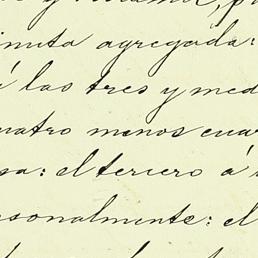 inuta agregada:
á las tres y med
uatro menos cuar
sa: el tercero á
rsonalmente: el